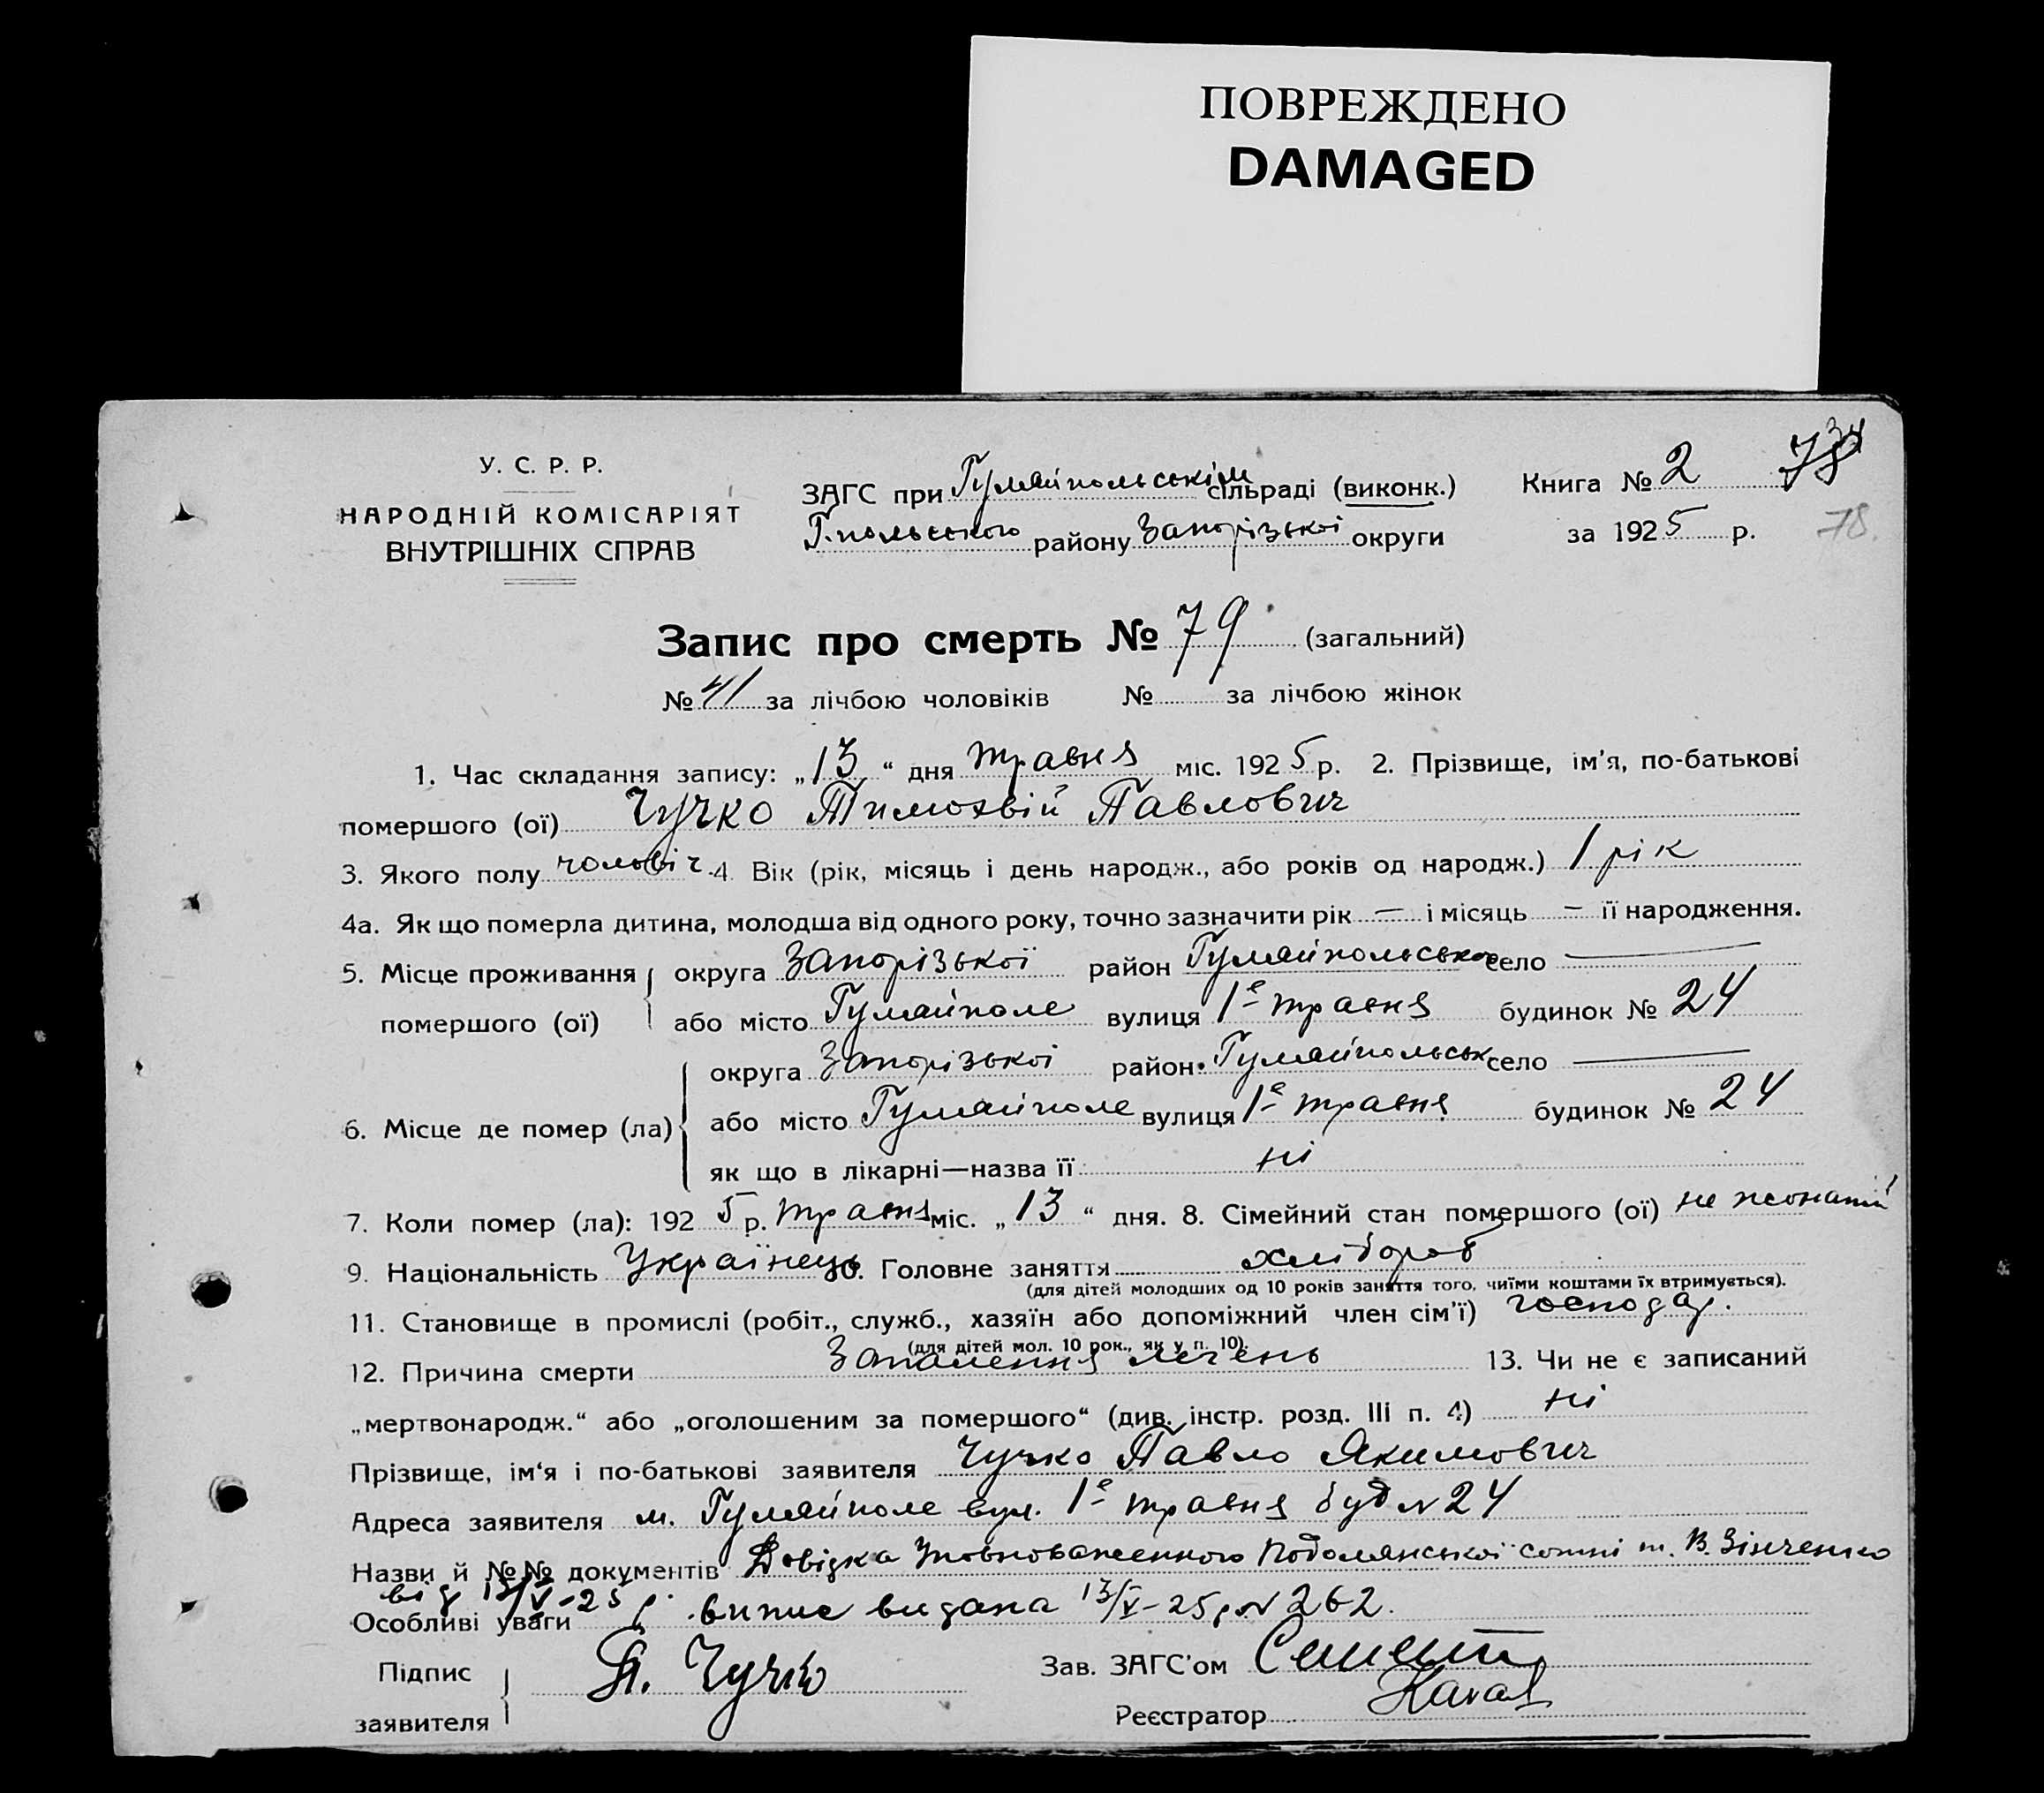 ПОВРЕЖДЕНО
DAMAGED
У. С. Р. Р.
НАРОДНІЙ КОМІСАРІЯТ
ВНУТРІШНІХ СПРАВ
ЗАГС при Гуляйпольськім сільраді (виконк.)
Г.польського району Запорізької округи
Книга № 2
за 1925 р.
78.
Запис про смерть № 79 (загальний)
№ 41 за лічбою чоловіків № за лічбою жінок
1. Час складання запису: „13“ дня травня міс. 1925 р. 2. Прізвище, ім'я, по-батькові
помершого (ої) Чучко Тимохвій Павлович
3. Якого полу чоловіч. 4. Вік (рік, місяць і день народж., або років од народж.) 1 рік
4а. Як що померла дитина, молодша від одного року, точно зазначити рік — і місяць — її народження.
5. Місце проживання округа Запорізької район Гуляйпольсько село —
помершого (ої) або місто Гуляйполе вулиця 1е травня будинок № 24
округа Запорізької район Гуляйпольськ село —
6. Місце де помер (ла) або місто Гуляйполе вулиця 1е травня будинок № 24
як що в лікарні—назва її ні
7. Коли помер (ла): 1925 р. травня міс. „13“ дня. 8. Сімейний стан помершого (ої) не жонатий
9. Національність Українець 10. Головне заняття хлібороб
(для дітей молодших од 10 років заняття того, чиїми коштами їх втримується).
11. Становище в промислі (робіт., служб., хазяїн або допоміжний член сім'ї) господар.
(для дітей мол. 10 рок., як у п. 10).
12. Причина смерти Запалення легень 13. Чи не є записаний
„мертвонародж.“ або „оголошеним за помершого“ (див. інстр. розд. III п. 4) ні
Прізвище, ім‘я і по-батькові заявителя Чучко Павло Якимович
Адреса заявителя м. Гуляйполе вул. 1е травня буд № 24
Назви й №№ документів Довідка Уповноваженного Подолянської сотні т. В. Зінченко
від 13/V-25 р.
Особливі уваги випис видана 13/V-25 р № 262.
Підпис
заявителя П. Чучко
Зав. ЗАГС'ом
Реєстратор